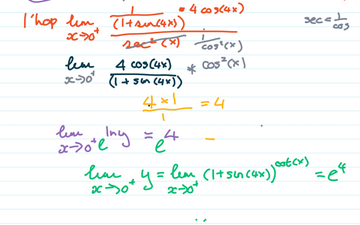 l'hop lim x→0⁺ 1/(1+sin(4x)) * 4cos(4x) / sec²(x) 1/cos²(x) sec = 1/cos
lim x→0⁺ 4 cos(4x)/(1+sin(4x)) * cos²(x)
4×1/1 = 4
lim x→0⁺ e^lny = e^4
lim x→0⁺ y = lim x→0⁺ (1+sin(4x))^cot(x) = e^4